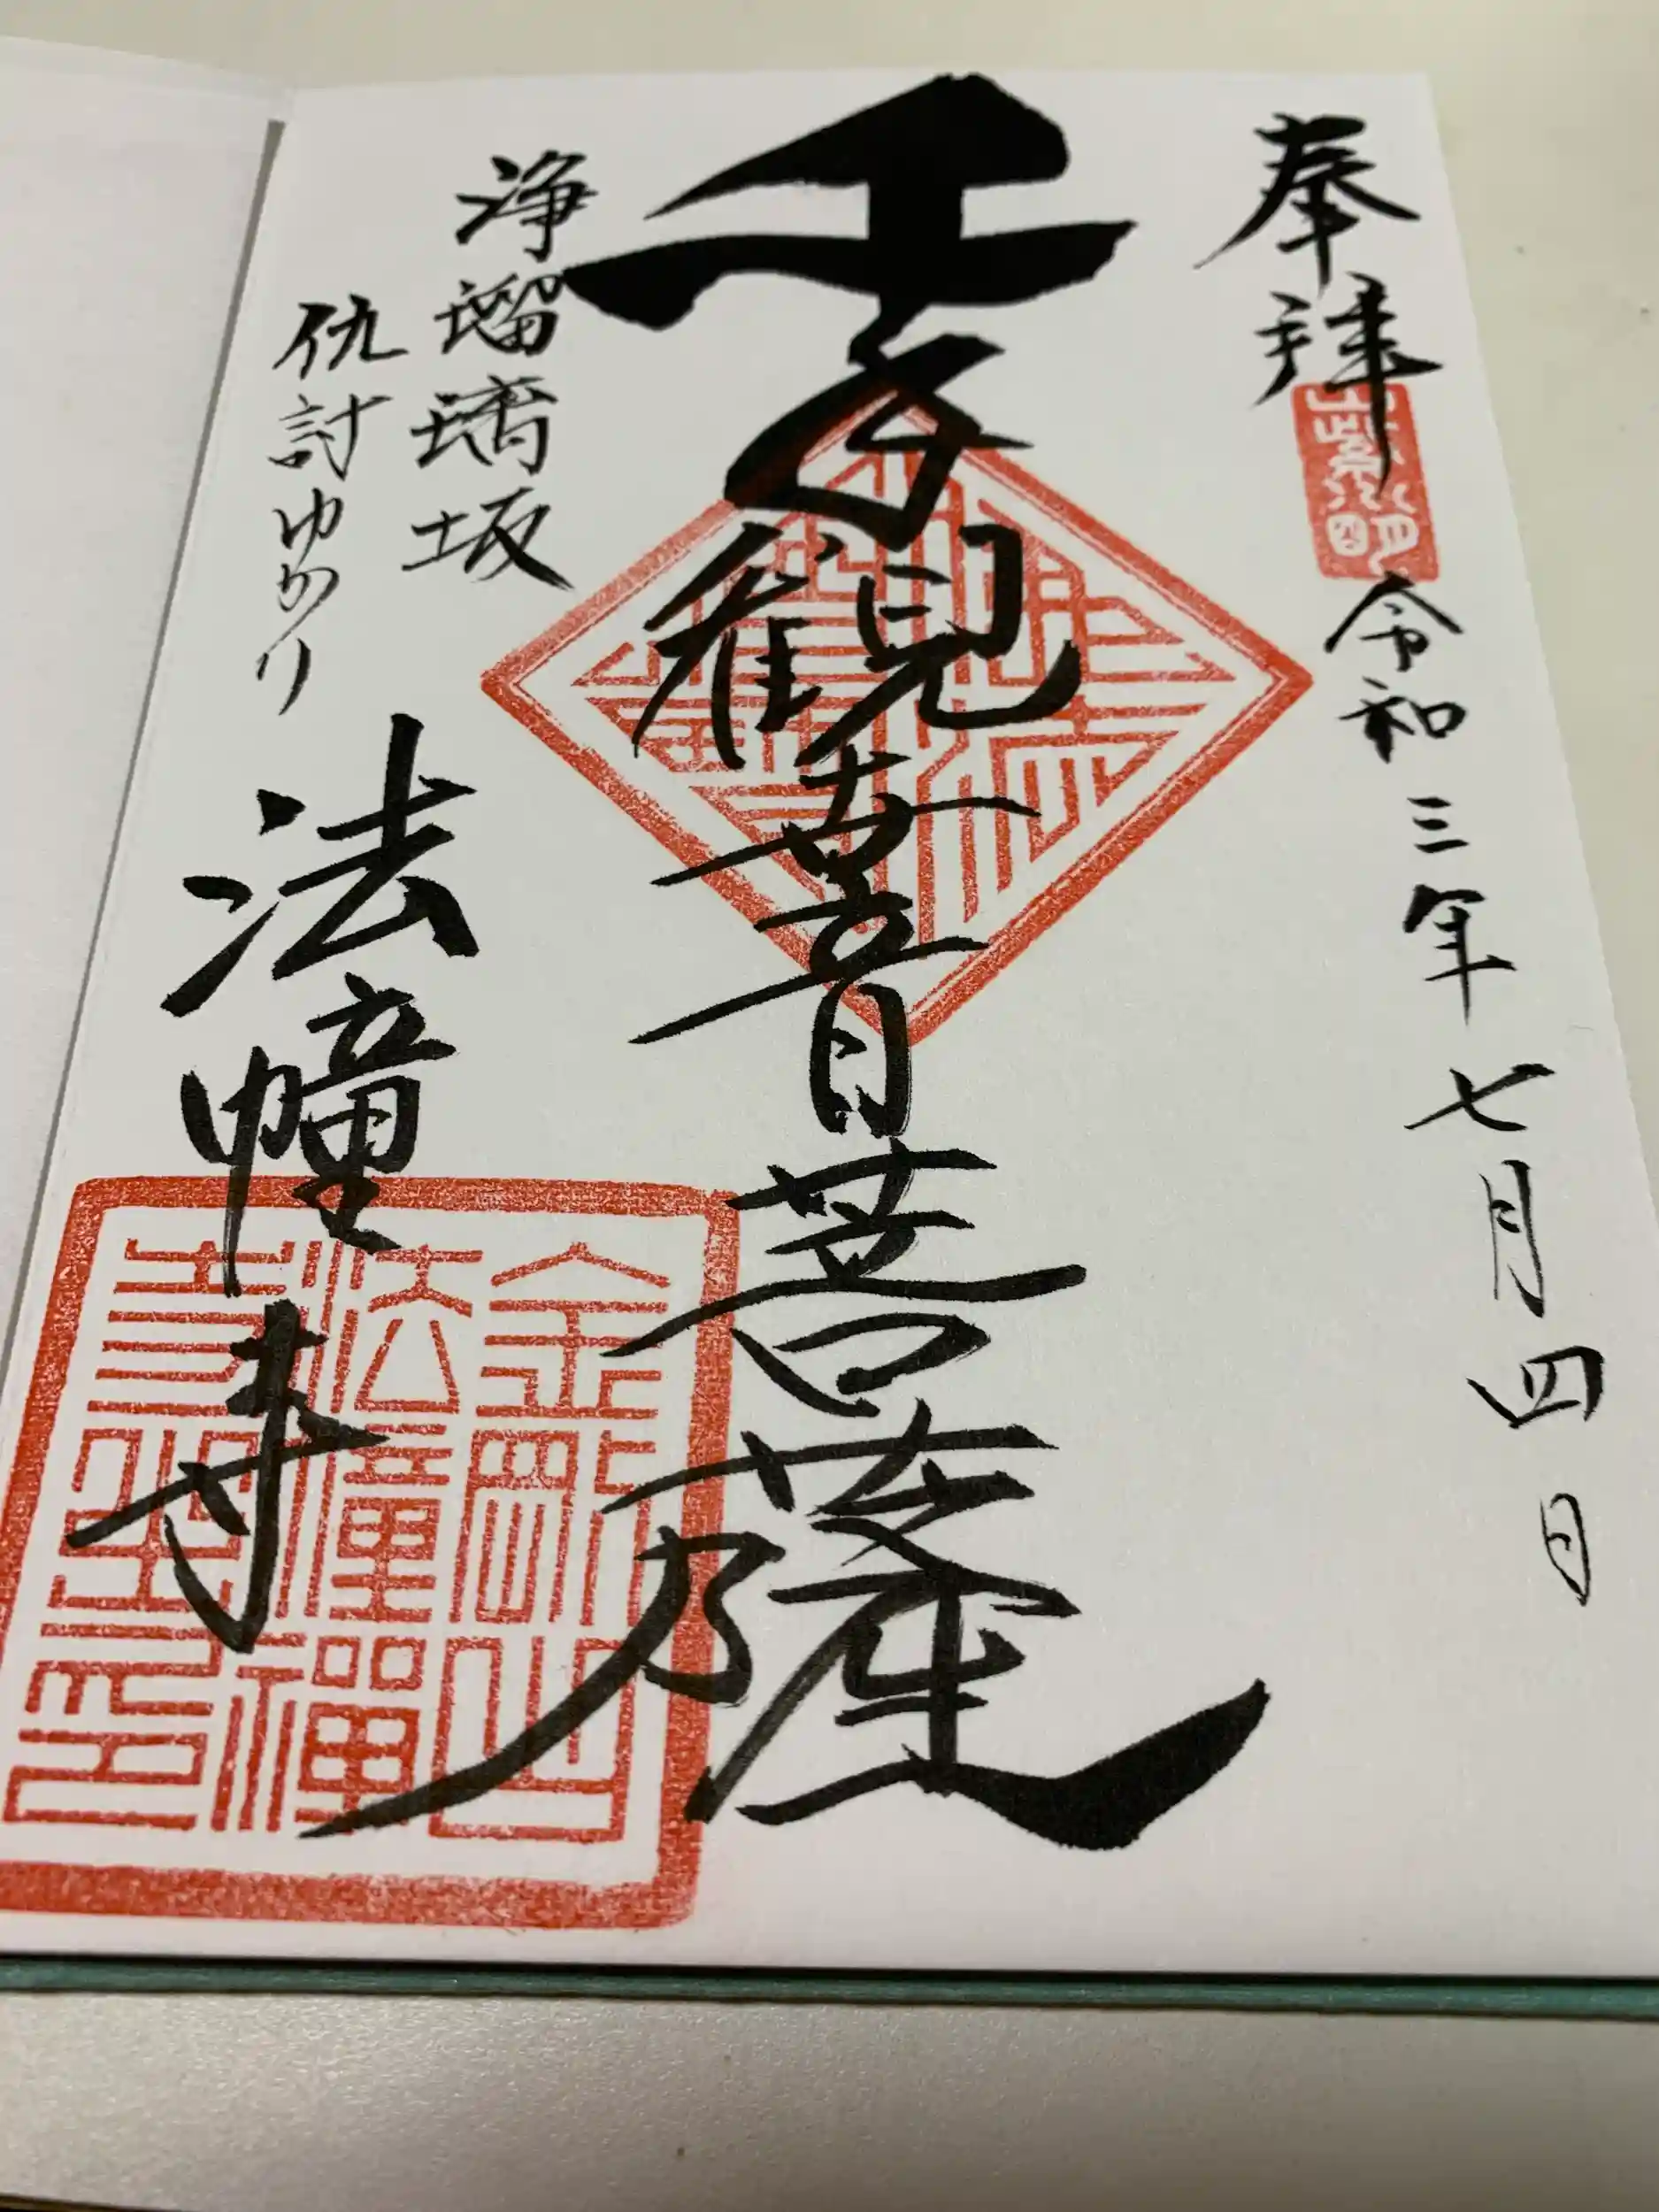 奉拝
山紫水明
令和三年七月四日
千手観世音菩薩
浄瑠璃坂
仇討ゆかり
法幢寺
金剛山
法幢禪